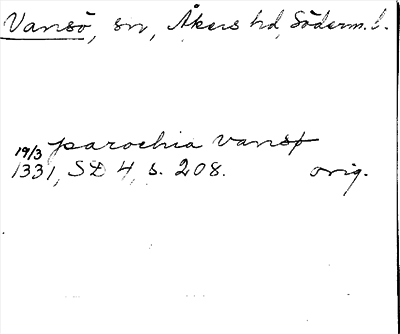 Vansö, sn, Åkers hd, Söderm. l.
parochia vansø
19/3
1331, SD 4, s. 208. orig.